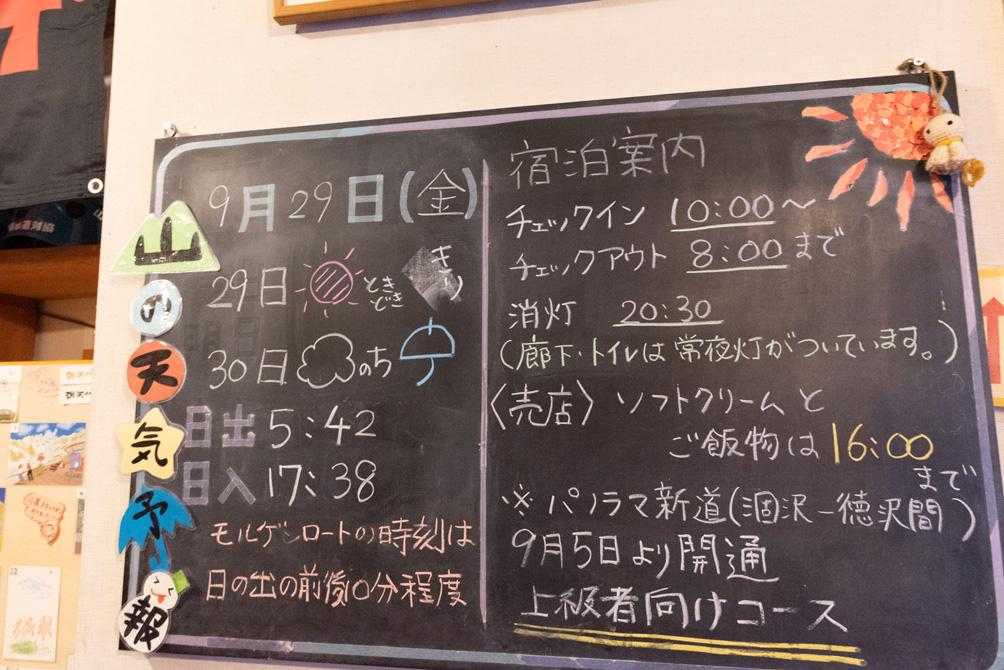 山の天気予報
9月29日(金)
29日 ときどき きり
30日 のち
日出 5:42
日入 17:38
モルゲンロートの時刻は
日の出の前後10分程度
宿泊案内
チェックイン 10:00～
チェックアウト 8:00まで
消灯 20:30
(廊下・トイレは常夜灯がついています。)
〈売店〉 ソフトクリームと
ご飯物は16:00
まで
※パノラマ新道(涸沢-徳沢間)
9月5日より開通
上級者向けコース